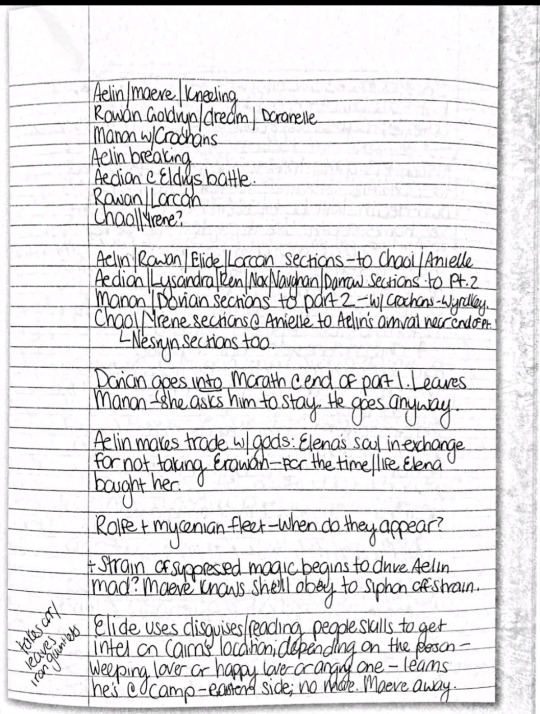 Aelin/Maeve/Kneeling
Rowan Goldryn/dream/Doranelle
Manon w/Crochans
Aelin breaking
Aedion @ Eldrys battle.
Rowan/Lorcan
Chaol/Yrene?
Aelin/Rowan/Elide/Lorcan sections-to Chaol/Anielle
Aedion/Lysandra/Ren/Nox/Vaughan/Darrow sections to Pt.2
Manon/Dorian sections to part 2-w/Crochans-Wyrdkey.
Chaol/Yrene sections @ Anielle to Aelin's arrival near end of Pt.1
Nesryn sections too.
Dorian goes into Morath @ end of part 1. Leaves
Manon-she asks him to stay. He goes anyway.
Aelin makes trade w/gods: Elena's soul in exchange
for not taking Erawan-for the time/life Elena
bought her.
Rolfe + mycenian fleet-When do they appear?
+ Strain of suppressed magic begins to drive Aelin
mad? Maeve knows she'll obey to siphon off strain.
Elide uses disguises/reading people skills to get
intel on Cairn's location; depending on the person-
weeping lover or happy lover or angry one - learns
he's @ camp-eastern side; no more. Maeve away.
takes off/
leaves
iron gauntlets